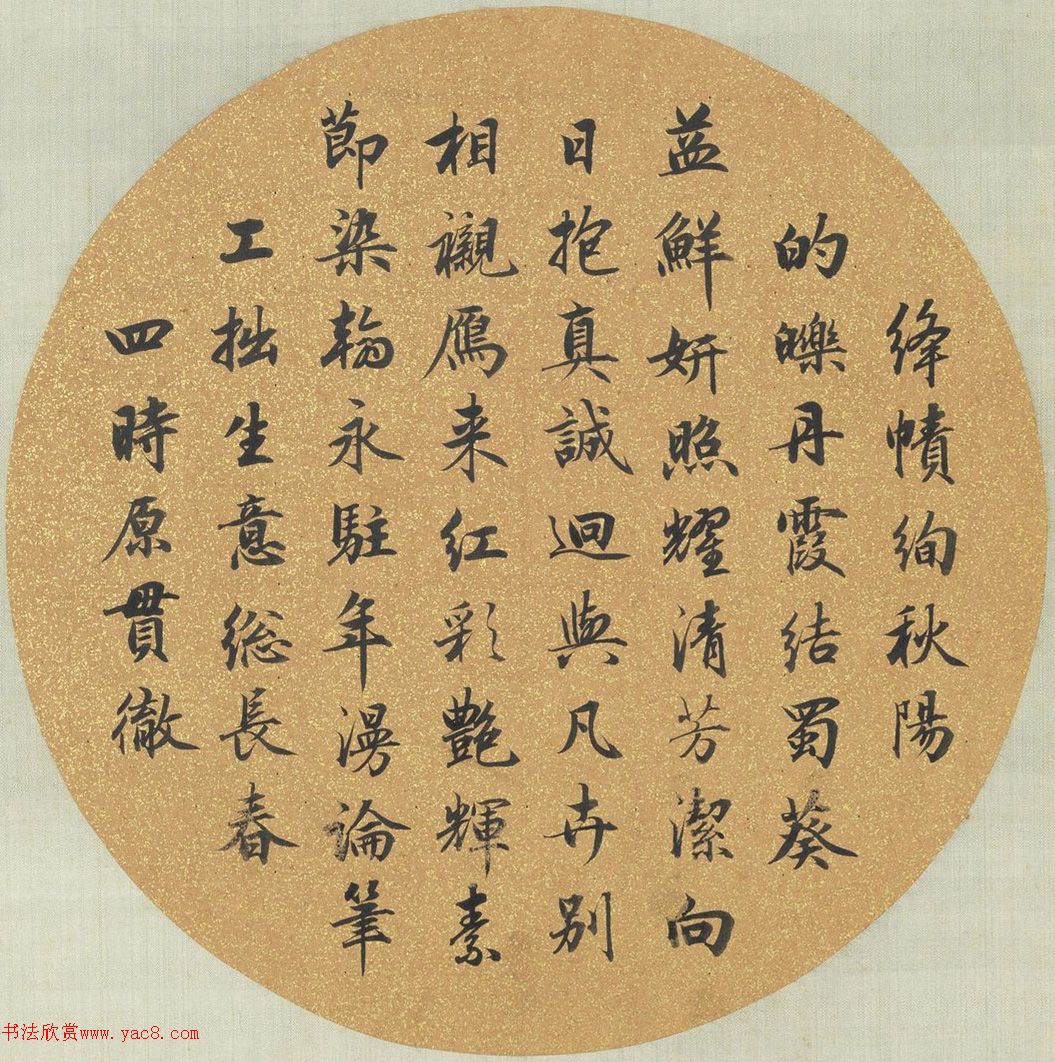 绛幘絢秋陽
的皪丹霞結蜀葵
益鮮妍照耀清芳潔向
日抱真誠迥與凡卉别
相襯鴈来红彩艷輝素
莭染翰永駐年漫論筆
工拙生意總長春
四時原貫徹
书法欣赏www.yac8.com